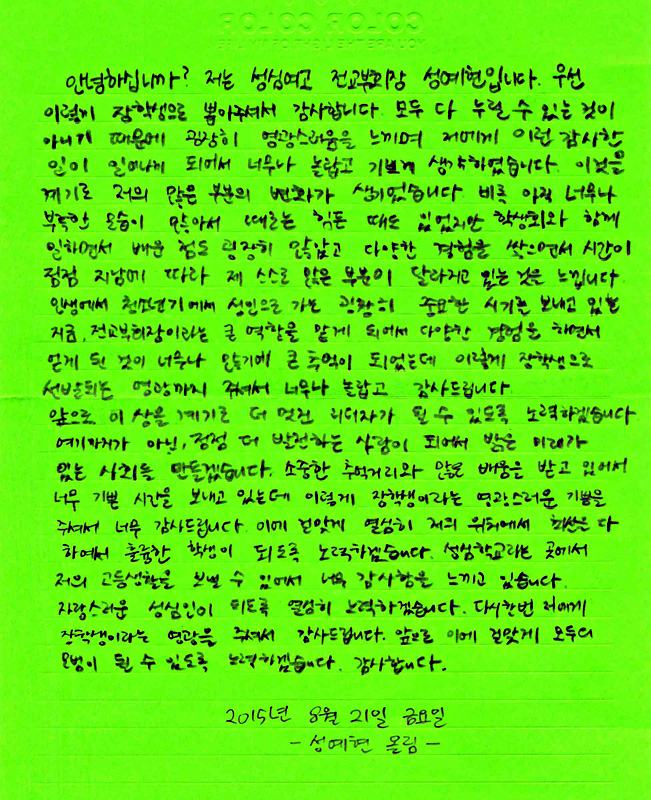 COLOR COLOR
안녕하십니까? 저는 성심여고 전교부회장 성예현입니다. 우선
이렇게 장학생으로 뽑아주셔서 감사합니다. 모두 다 누릴 수 있는 것이
아니기 때문에 굉장히 영광스러움을 느끼며 저에게 이런 감사한
일이 일어나게 되어서 너무나 놀랍고 기쁘게 생각하였습니다. 이것을
계기로 저의 많은 부분의 변화가 생기었습니다. 비록 아직 너무나
부족한 모습이 많아서 때로는 힘든 때도 있었지만 학생회와 함께
일하면서 배운 점도 굉장히 많았고 다양한 경험을 쌓으면서 시간이
점점 지남에 따라 제 스스로 많은 부분이 달라지고 있는 것은 느낍니다
인생에서 청소년기에서 성인으로 가는 굉장히 중요한 시기를 보내고 있는
지금, 전교부회장이라는 큰 역할을 맡게 되어서 다양한 경험을 하면서
얻게 된 것이 너무나 많기에 큰 추억이 되었는데 이렇게 장학생으로
선발되는 영광까지 주셔서 너무나 놀랍고 감사드립니다.
앞으로 이 상을 계기로 더 멋진 리더자가 될 수 있도록 노력하겠습니다
여기까지가 아닌, 점점 더 발전하는 사람이 되어서 밝은 미래가
있는 사회를 만들겠습니다. 소중한 추억거리와 많은 배움을 받고 있어서
너무 기쁜 시간을 보내고 있는데 이렇게 장학생이라는 영광스러운 기쁨을
주셔서 너무 감사드립니다. 이에 걸맞게 열심히 저의 위치에서 최선을 다
하여서 훌륭한 학생이 되도록 노력하겠습니다. 성심학교라는 곳에서
저의 고등생활을 보낼 수 있어서 너무 감사함을 느끼고 있습니다.
자랑스러운 성심인이 되도록 열심히 노력하겠습니다. 다시한번 저에게
장학생이라는 영광을 주셔서 감사드립니다. 앞으로 이에 걸맞게 모두의
모범이 될 수 있도록 노력하겠습니다. 감사합니다.
2015년 8월 21일 금요일
- 성예현 올림 -